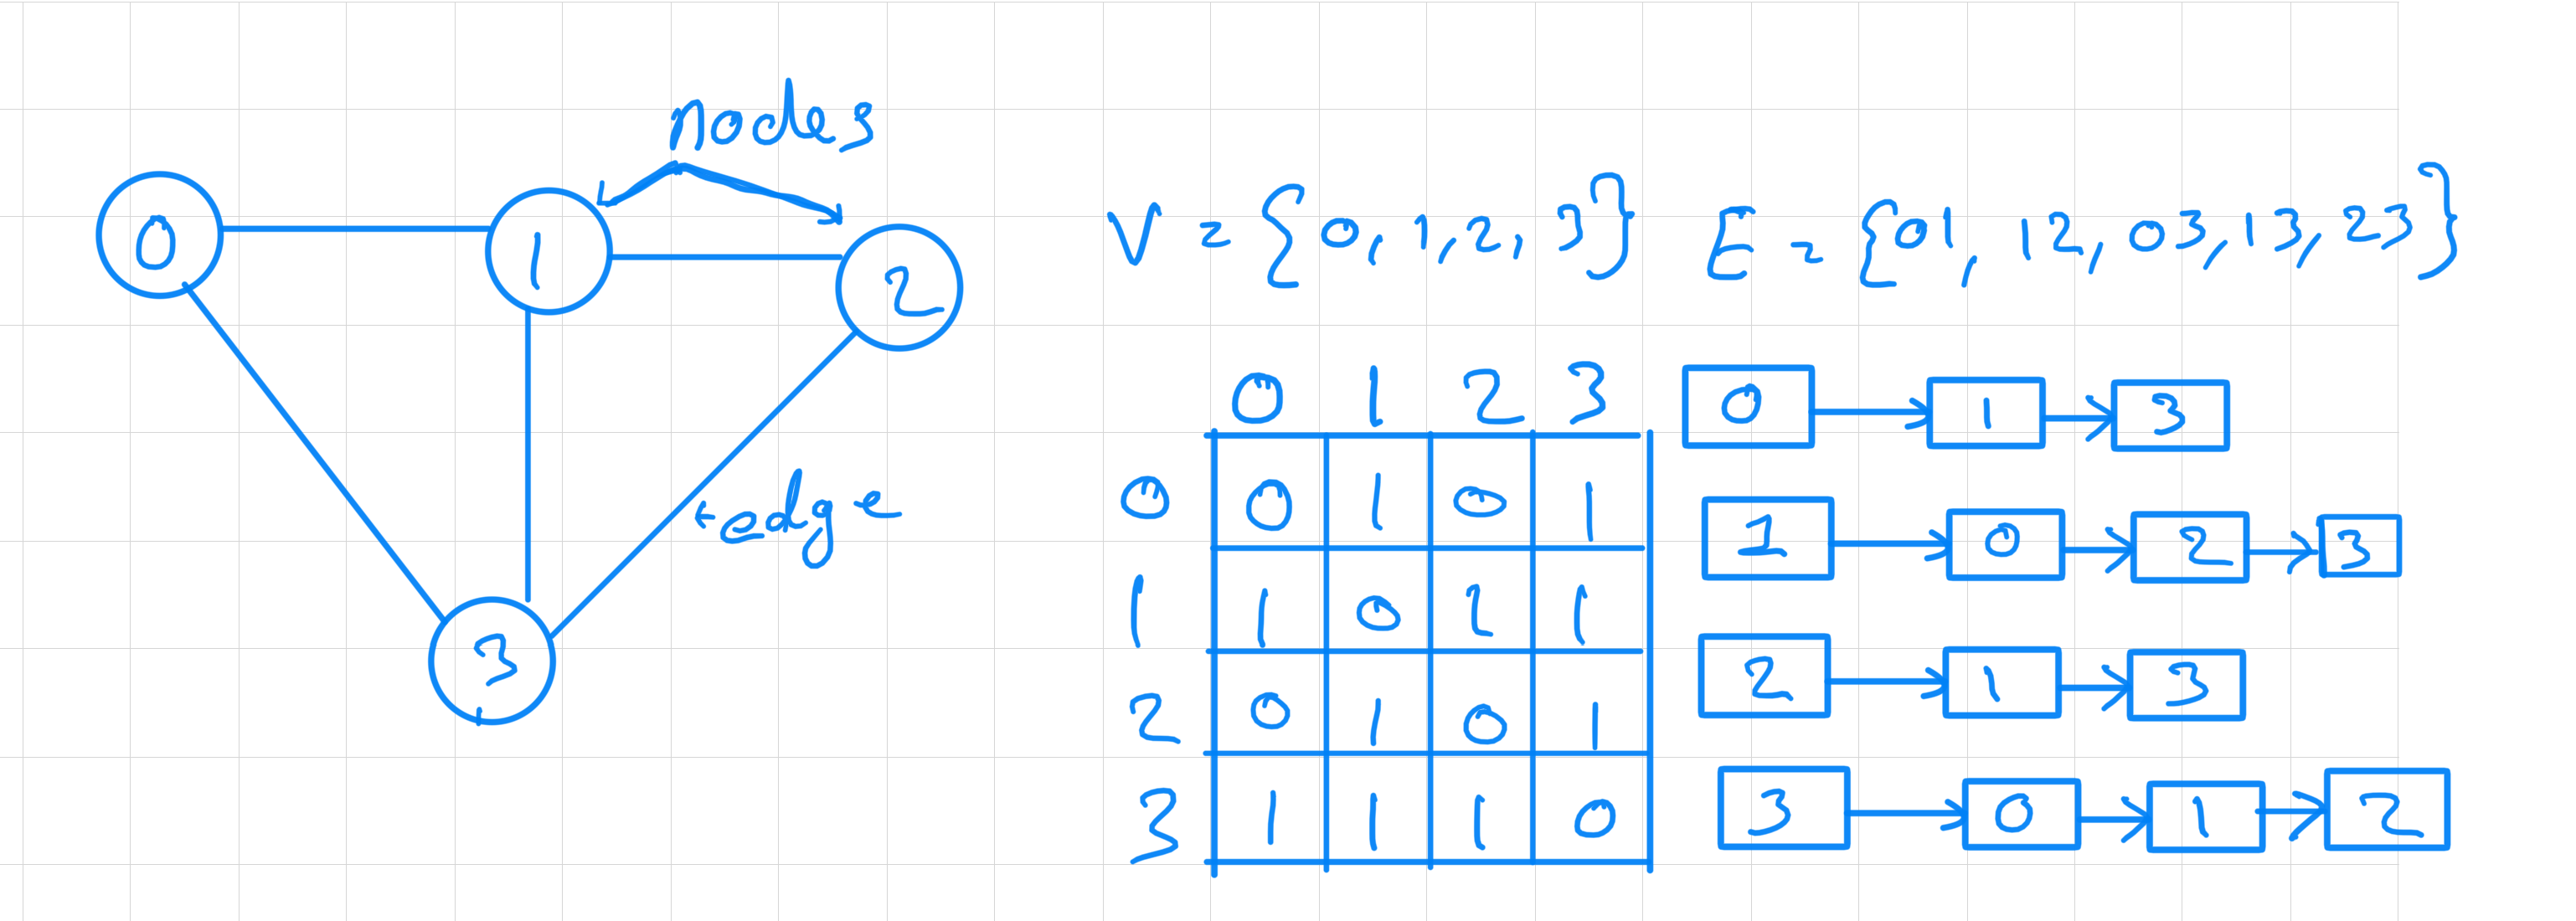 nodes
0
1
2
3
edge
V = {0, 1, 2, 3} E = {01, 12, 03, 13, 23}
0 1 2 3
0 0 1 0 1
1 1 0 1 1
2 0 1 0 1
3 1 1 1 0
0 1 3
1 0 2 3
2 1 3
3 0 1 2